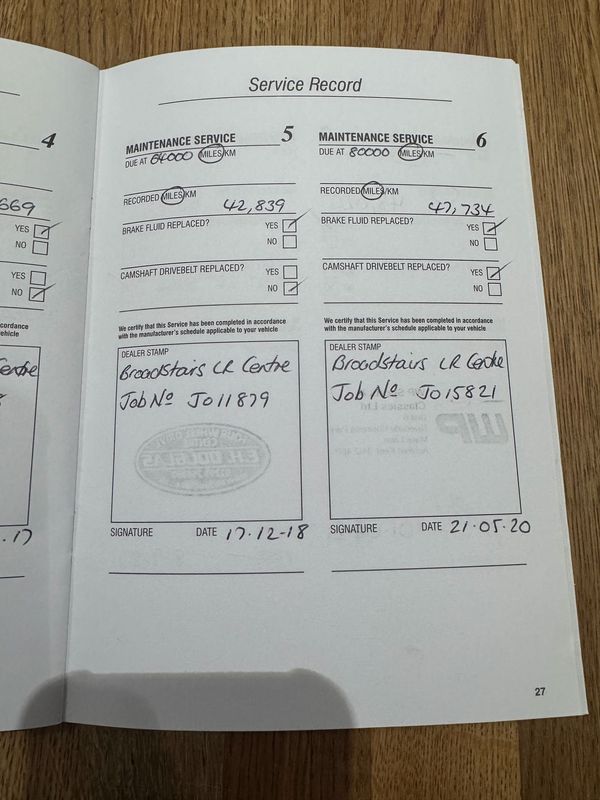 Service Record
4
669
YES
NO
YES
NO
cordance
ehicle
Centre
.17
MAINTENANCE SERVICE 5
DUE AT 64000 MILES/KM
RECORDED MILES/KM
42,839
BRAKE FLUID REPLACED? YES
NO
CAMSHAFT DRIVEBELT REPLACED? YES
NO
We certify that this Service has been completed in accordance
with the manufacturer's schedule applicable to your vehicle
DEALER STAMP
Broadstairs LR Centre
Job Nº JO11879
SIGNATURE DATE 17.12-18
MAINTENANCE SERVICE 6
DUE AT 80000 MILES/KM
RECORDED MILES/KM
47,734
BRAKE FLUID REPLACED? YES
NO
CAMSHAFT DRIVEBELT REPLACED? YES
NO
We certify that this Service has been completed in accordance
with the manufacturer's schedule applicable to your vehicle
DEALER STAMP
Broadstairs LR Centre
Job Nº JO15821
SIGNATURE DATE 21.05.20
27